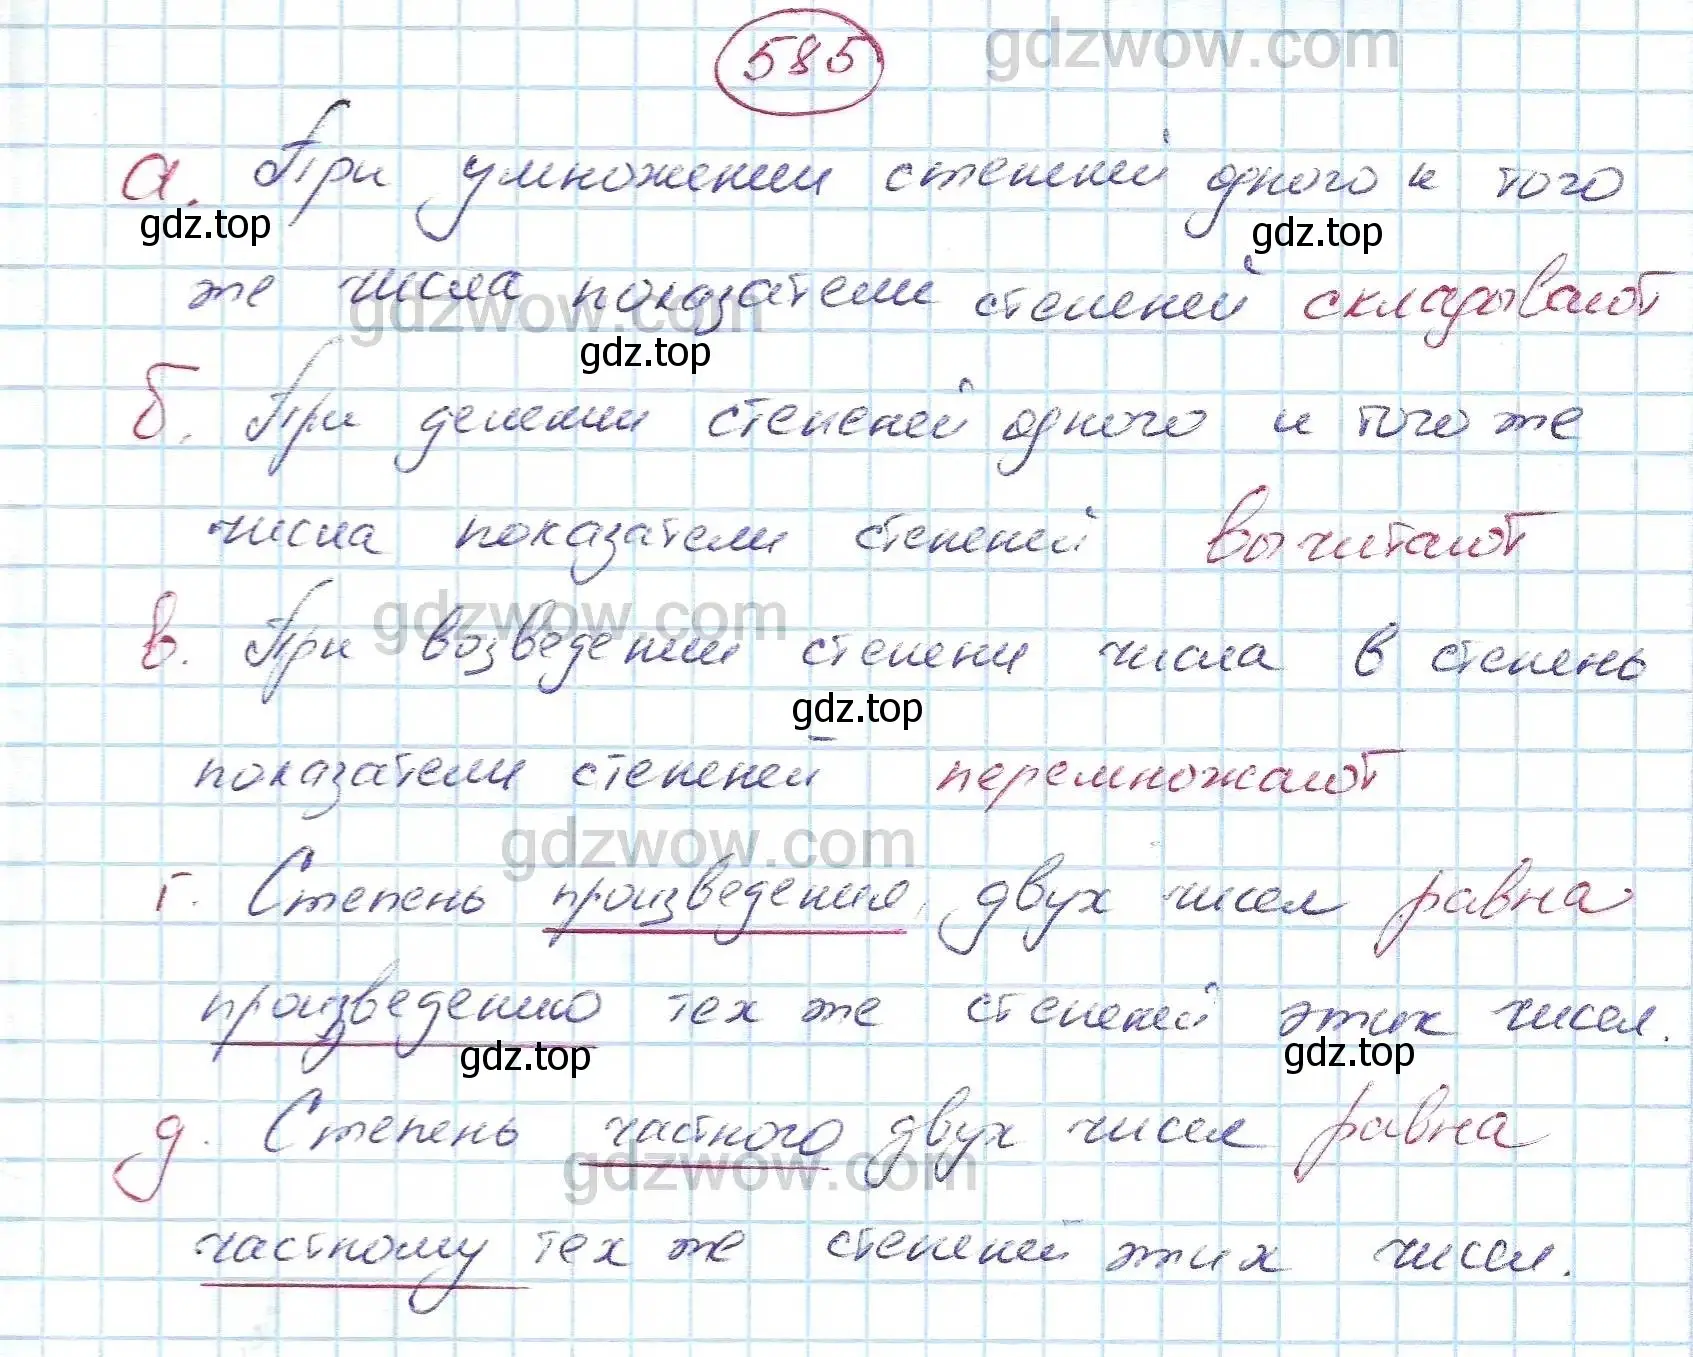 585
gdzwow.com
а. При умножении степеней одного и того
gdz.top
gdz.top
же числа показатели степеней складывают
gdzwow.com
gdz.top
б. При делении степеней одного и того же
числа показатели степеней вычитают
gdzwow.com
в. При возведении степени числа в степень
gdz.top
показатели степеней перемножают
gdzwow.com
г. Степень произведения двух чисел равна
произведению тех же степеней этих чисел.
gdz.top
gdz.top
д. Степень частного двух чисел равна
gdzwow.com
частному тех же степеней этих чисел.